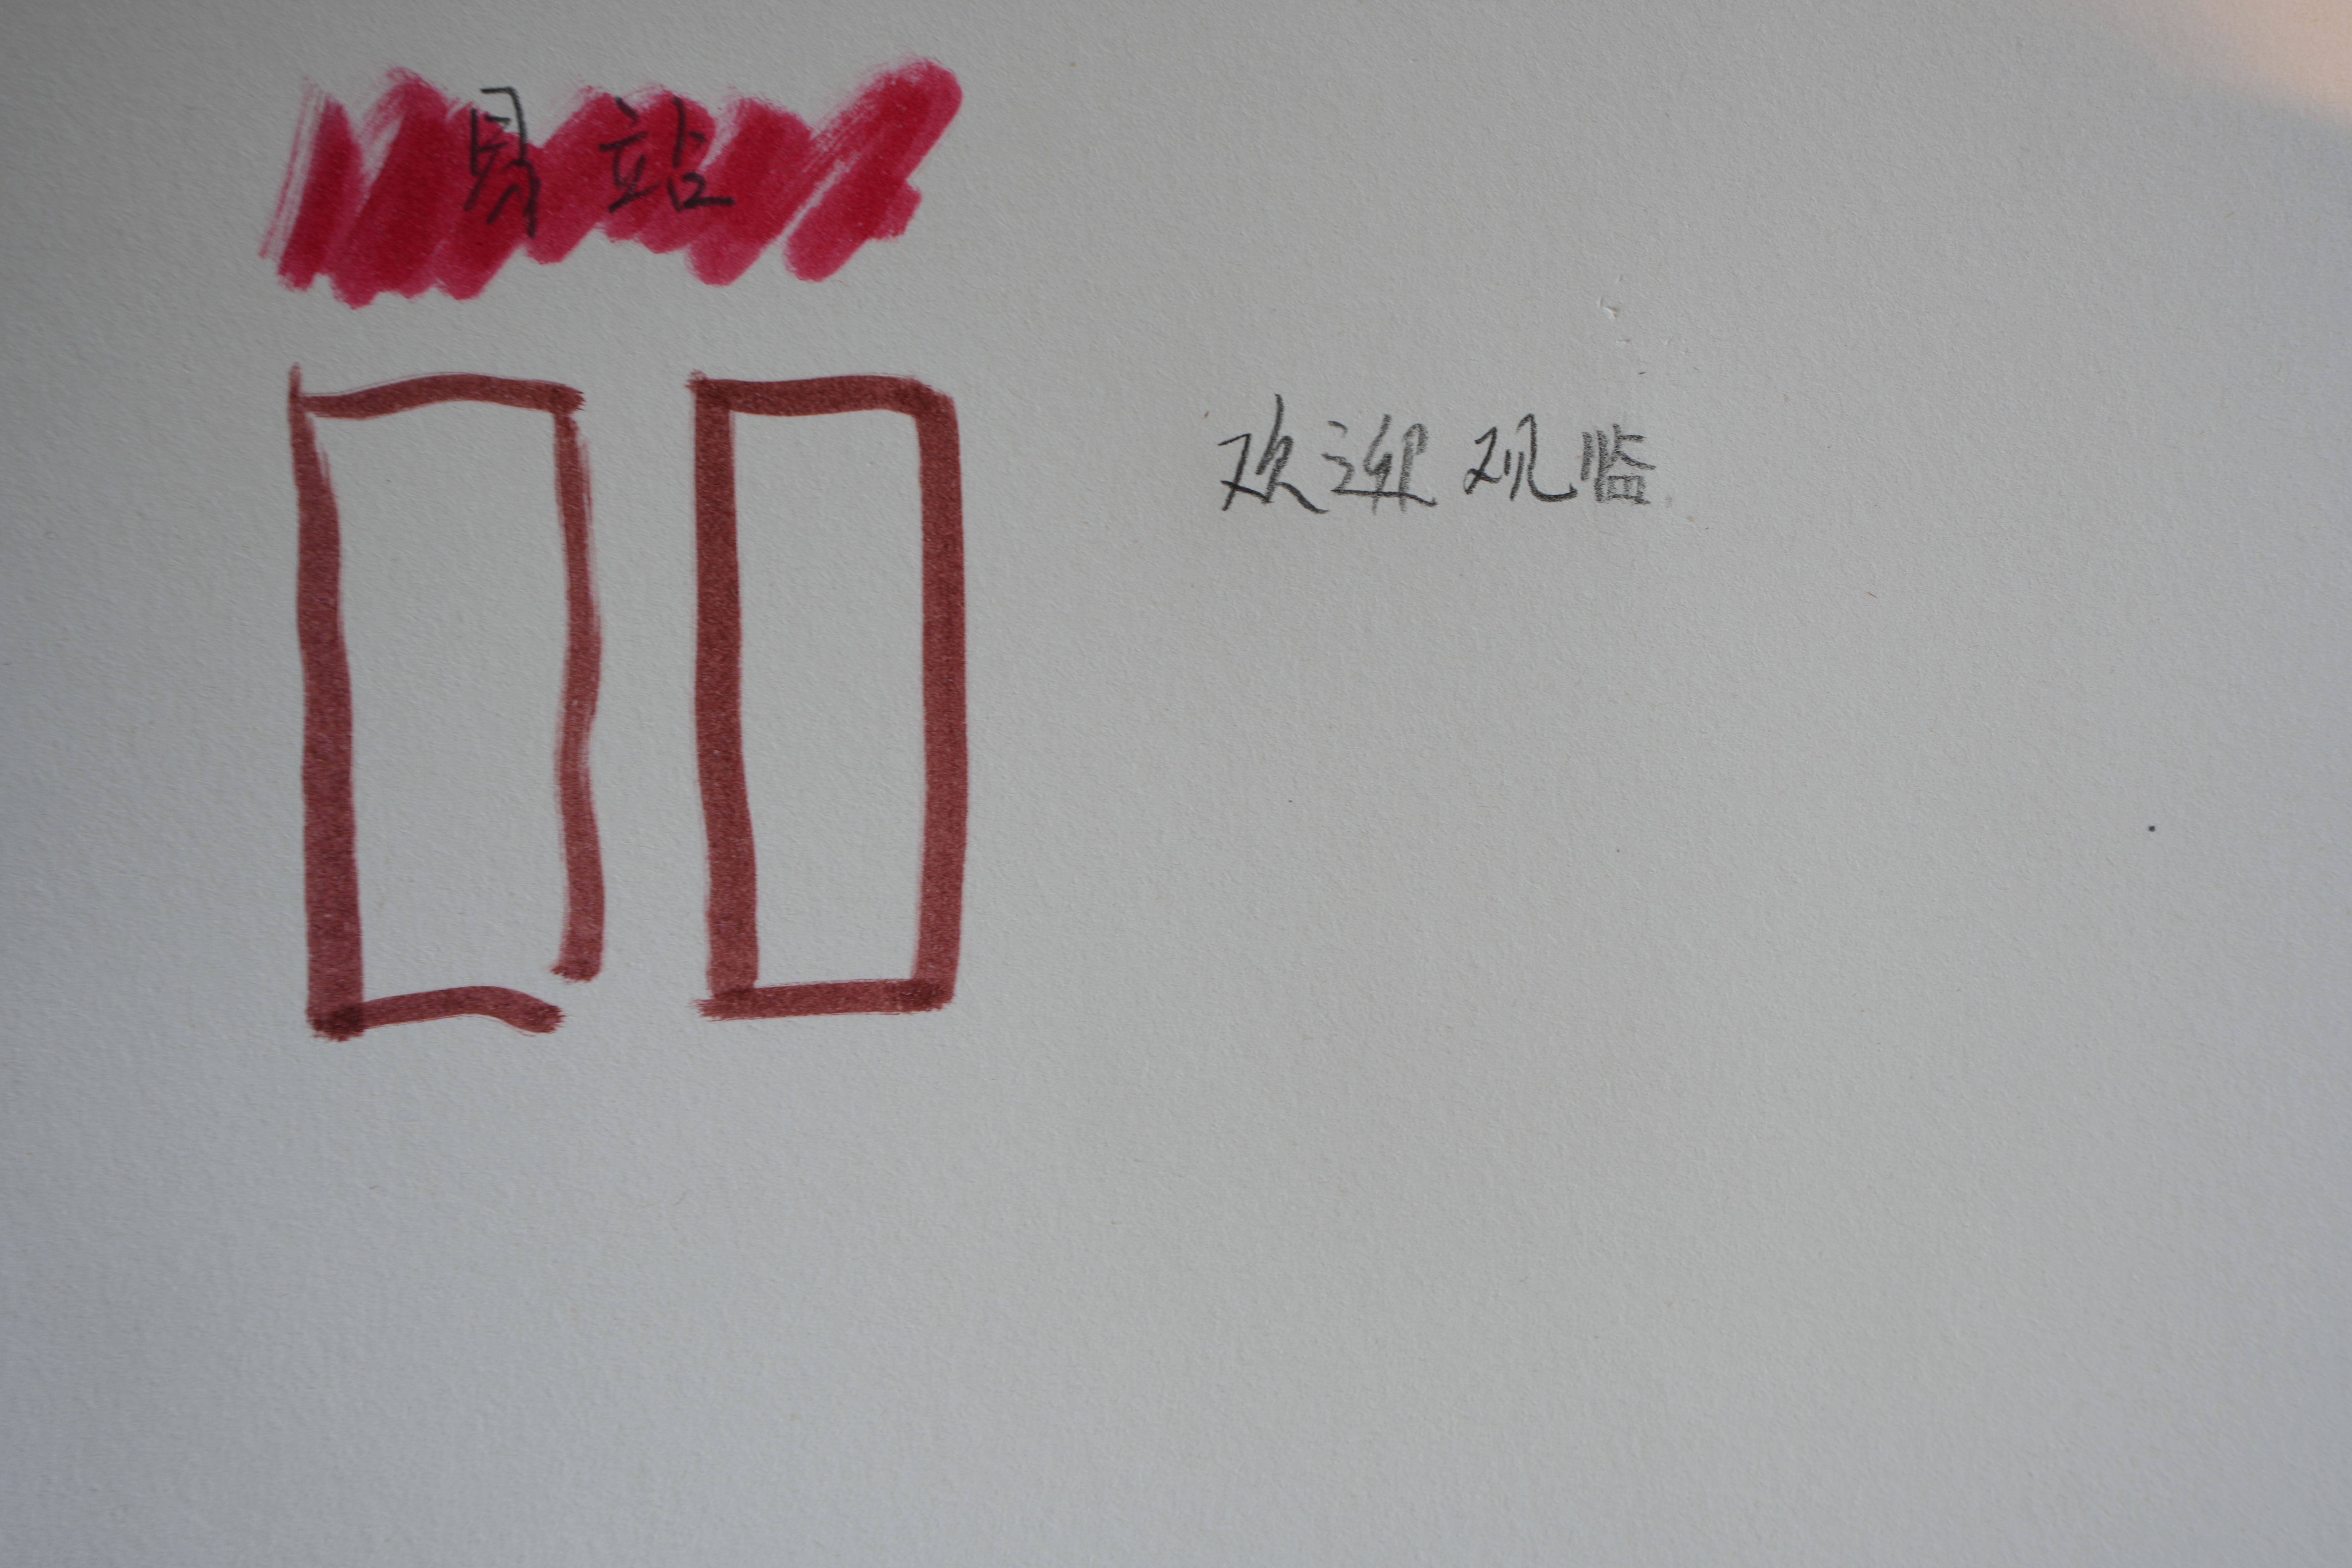 易站
欢迎观临